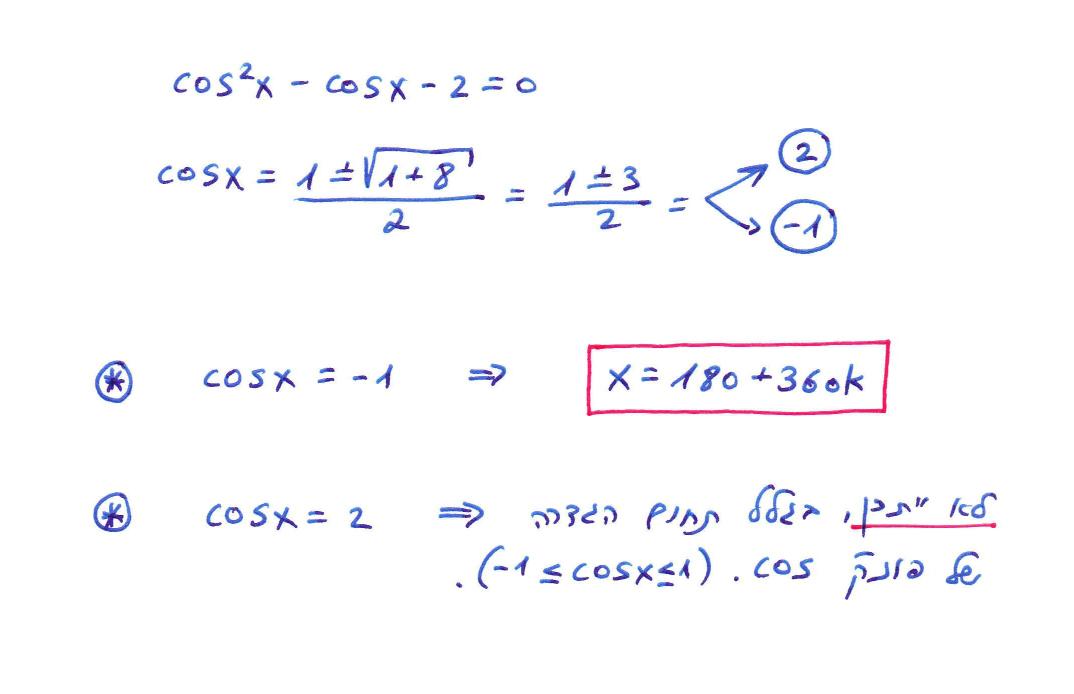 cos²x - cosx - 2 = 0
cosx = (1 ± √(1+8))/2 = (1 ± 3)/2 = 2, -1
* cosx = -1 ⇒ x = 180 + 360k
* cosx = 2 ⇒ לא ייתכן, בגלל תחום הגדרה
של פונק' cos. (-1 ≤ cosx ≤ 1).